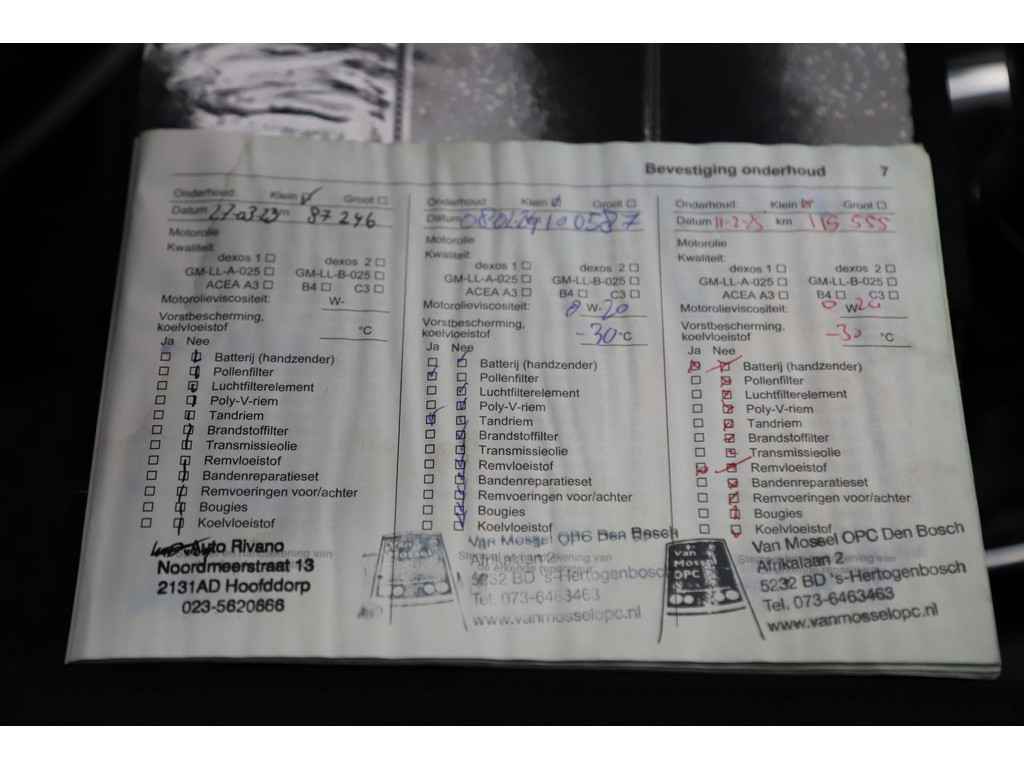 Bevestiging onderhoud 7
Onderhoud: Klein Groot
Datum 22-03-23 km 87 246
Motorolie
Kwaliteit:
dexos 1 dexos 2
GM-LL-A-025 GM-LL-B-025
ACEA A3 B4 C3
Motorolieviscositeit: W-
Vorstbescherming,
koelvloeistof °C
Ja Nee
Batterij (handzender)
Pollenfilter
Luchtfilterelement
Poly-V-riem
Tandriem
Brandstoffilter
Transmissieolie
Remvloeistof
Bandenreparatieset
Remvoeringen voor/achter
Bougies
Koelvloeistof
Auto Rivano
Noordmeerstraat 13
2131AD Hoofddorp
023-5620666
Onderhoud: Klein Groot
Datum 080224 100587
Motorolie
Kwaliteit:
dexos 1 dexos 2
GM-LL-A-025 GM-LL-B-025
ACEA A3 B4 C3
Motorolieviscositeit: 0 W-20
Vorstbescherming,
koelvloeistof -30 °C
Ja Nee
Batterij (handzender)
Pollenfilter
Luchtfilterelement
Poly-V-riem
Tandriem
Brandstoffilter
Transmissieolie
Remvloeistof
Bandenreparatieset
Remvoeringen voor/achter
Bougies
Koelvloeistof
Van Mossel OPC Den Bosch
Afrikalaan 2
5232 BD 's-Hertogenbosch
Tel. 073-6463463
www.vanmosselopc.nl
Onderhoud: Klein Groot
Datum 11-2-25 km 115 555
Motorolie
Kwaliteit:
dexos 1 dexos 2
GM-LL-A-025 GM-LL-B-025
ACEA A3 B4 C3
Motorolieviscositeit: 0 W 20
Vorstbescherming,
koelvloeistof -30 °C
Ja Nee
Batterij (handzender)
Pollenfilter
Luchtfilterelement
Poly-V-riem
Tandriem
Brandstoffilter
Transmissieolie
Remvloeistof
Bandenreparatieset
Remvoeringen voor/achter
Bougies
Koelvloeistof
van
Mossel
OPC
Van Mossel OPC Den Bosch
Afrikalaan 2
5232 BD 's-Hertogenbosch
Tel. 073-6463463
www.vanmosselopc.nl